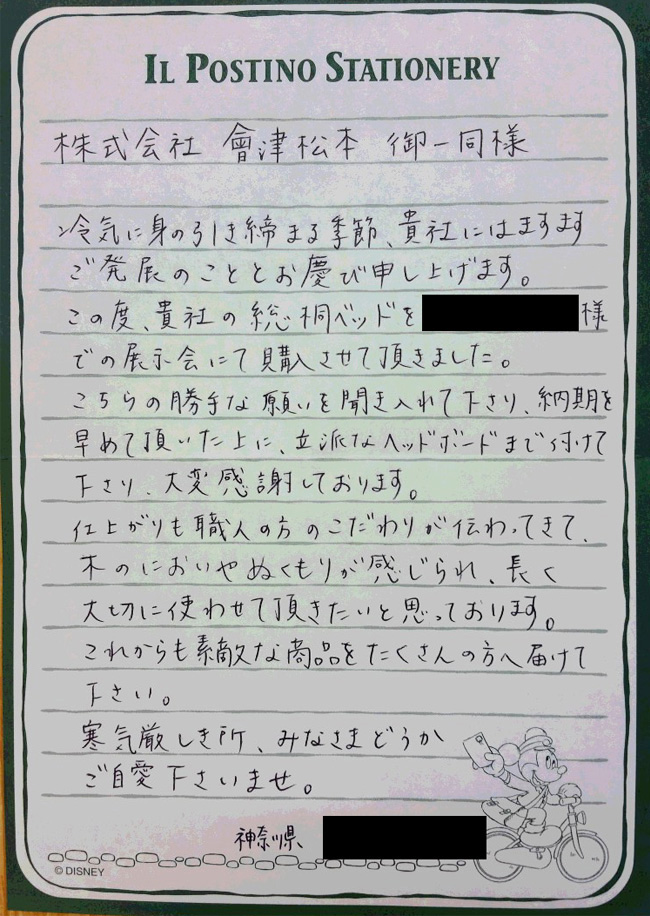 IL POSTINO STATIONERY
株式会社 會津松本 御一同様
冷気に身の引き締まる季節、貴社にはますます
ご発展のこととお慶び申し上げます。
この度、貴社の総桐ベッドを 様
での展示会にて購入させて頂きました。
こちらの勝手な願いを聞き入れて下さり、納期を
早めて頂いた上に、立派なヘッドボードまで付けて
下さり、大変感謝しております。
仕上がりも職人の方のこだわりが伝わってきて、
木のにおいやぬくもりが感じられ、長く
大切に使わせて頂きたいと思っております。
これからも素敵な商品をたくさんの方へ届けて
下さい。
寒気厳しき所、みなさまどうか
ご自愛下さいませ。
神奈川県
© DISNEY